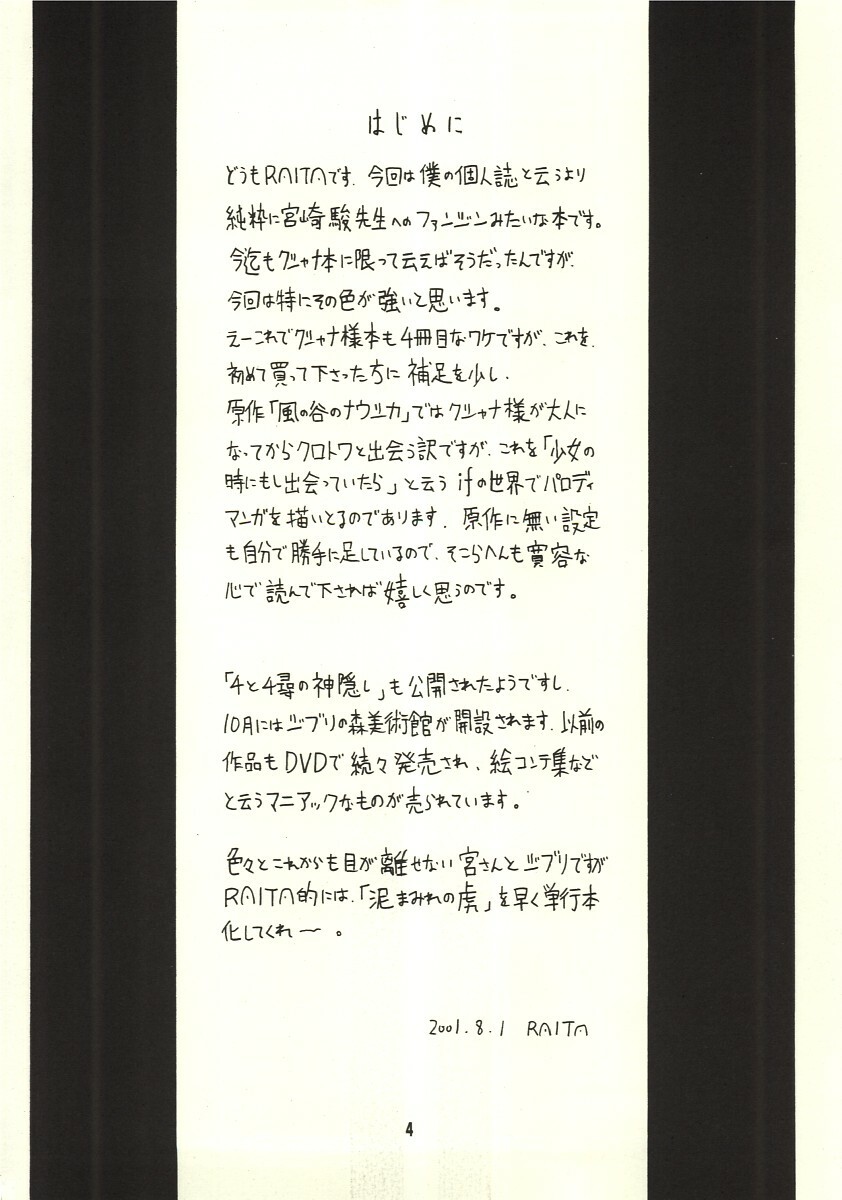 はじめに
どうもRAITAです. 今回は僕の個人誌と云うより
純粋に宮崎駿先生へのファンジンみたいな本です。
今迄もクシャナ本に限って云えばそうだったんですが.
今回は特にその色が強いと思います。
えーこれでクシャナ様本も4冊目なワケですが、これを.
初めて買って下さった方に補足を少し.
原作「風の谷のナウシカ」ではクシャナ様が大人に
なってからクロトワと出会う訳ですが、これを「少女の
時にもし出会っていたら」と云う ifの世界でパロディ
マンガを描いとるのであります. 原作に無い設定
も自分で勝手に足しているので、そこらへんも寛容な
心で読んで下されば嬉しく思うのです。
「4と4尋の神隠し」も公開されたようですし.
10月にはジブリの森美術館が開設されます. 以前の
作品もDVDで続々発売され、絵コンテ集など
と云うマニアックなものが売られています。
色々とこれからも目が離せない宮さんとジブリですが
RAITA的には、「泥まみれの虎」を早く単行本
化してくれ〜。
2001.8.1 RAITA
4